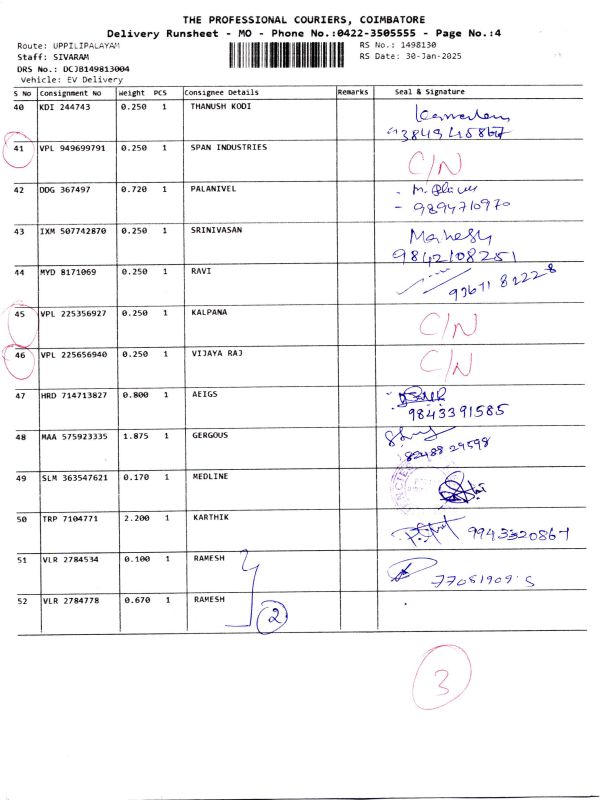 THE PROFESSIONAL COURIERS, COIMBATORE
Delivery Runsheet - MO - Phone No.:0422-3505555 - Page No.:4
Route: UPPILIPALAYAM
RS No.: 1498130
Staff: SIVARAM
RS Date: 30-Jan-2025
DRS No.: DCJB149813004
Vehicle: EV Delivery
S No Consignment No Weight PCS Consignee Details Remarks Seal & Signature
40 KDI 244743 0.250 1 THANUSH KODI
41 VPL 949699791 0.250 1 SPAN INDUSTRIES C/N
42 DDG 367497 0.720 1 PALANIVEL
9894710970
43 IXM 507742870 0.250 1 SRINIVASAN Mahesh
9842108251
44 MYD 8171069 0.250 1 RAVI
45 VPL 225356927 0.250 1 KALPANA C/N
46 VPL 225656940 0.250 1 VIJAYA RAJ C/N
47 HRD 714713827 0.800 1 AEIGS
9843391585
48 MAA 575923335 1.875 1 GERGOUS
8248829598
49 SLM 363547621 0.170 1 MEDLINE
50 TRP 7104771 2.200 1 KARTHIK 9943320867
51 VLR 2784534 0.100 1 RAMESH
52 VLR 2784778 0.670 1 RAMESH
2
3